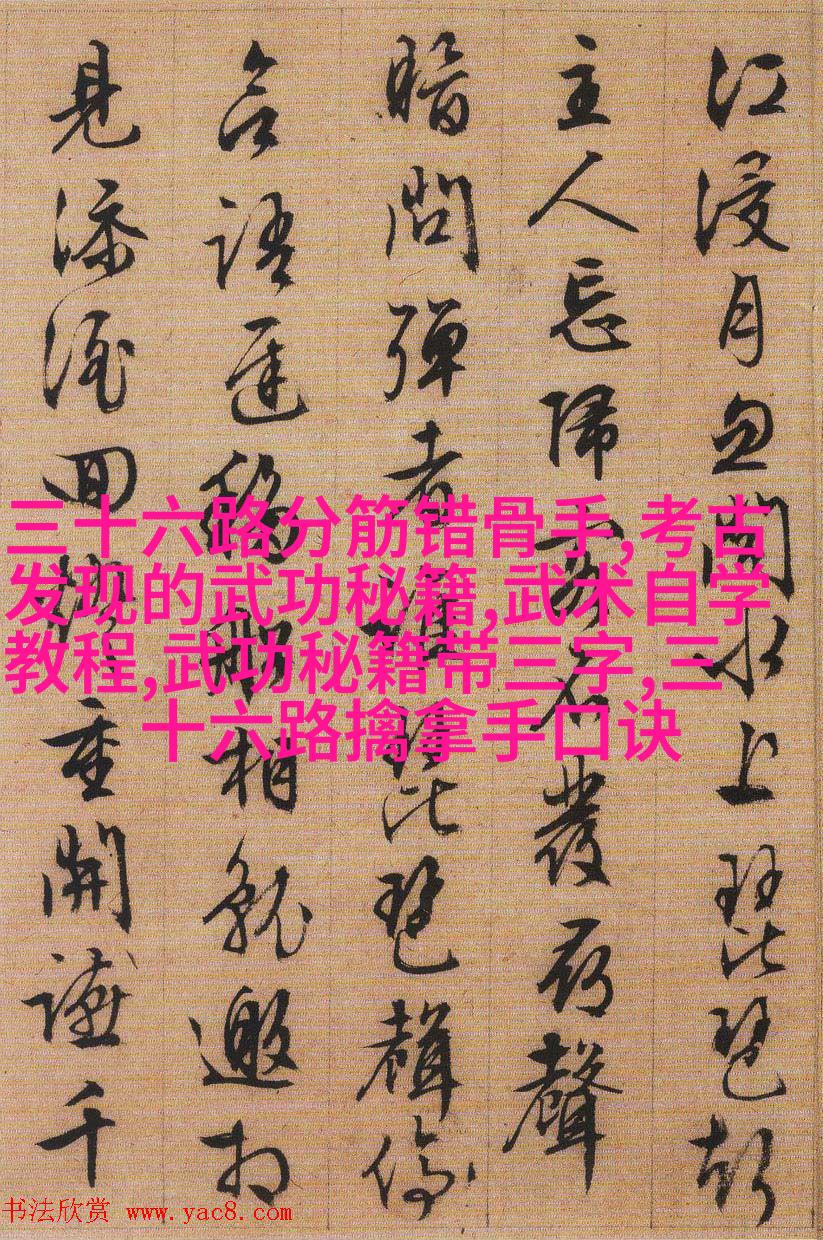 江浸月忽聞水上琵琶
主人忘歸客不發尋聲
暗問彈者誰琵琶聲停
語遲移船相就邀相
見添酒回燈重開讌千
三十六路分筋错骨手,考古
发现的武功秘籍,武术自学
教程,武功秘籍带三字,三
十六路擒拿手口诀
书法欣赏 www.yac8.com